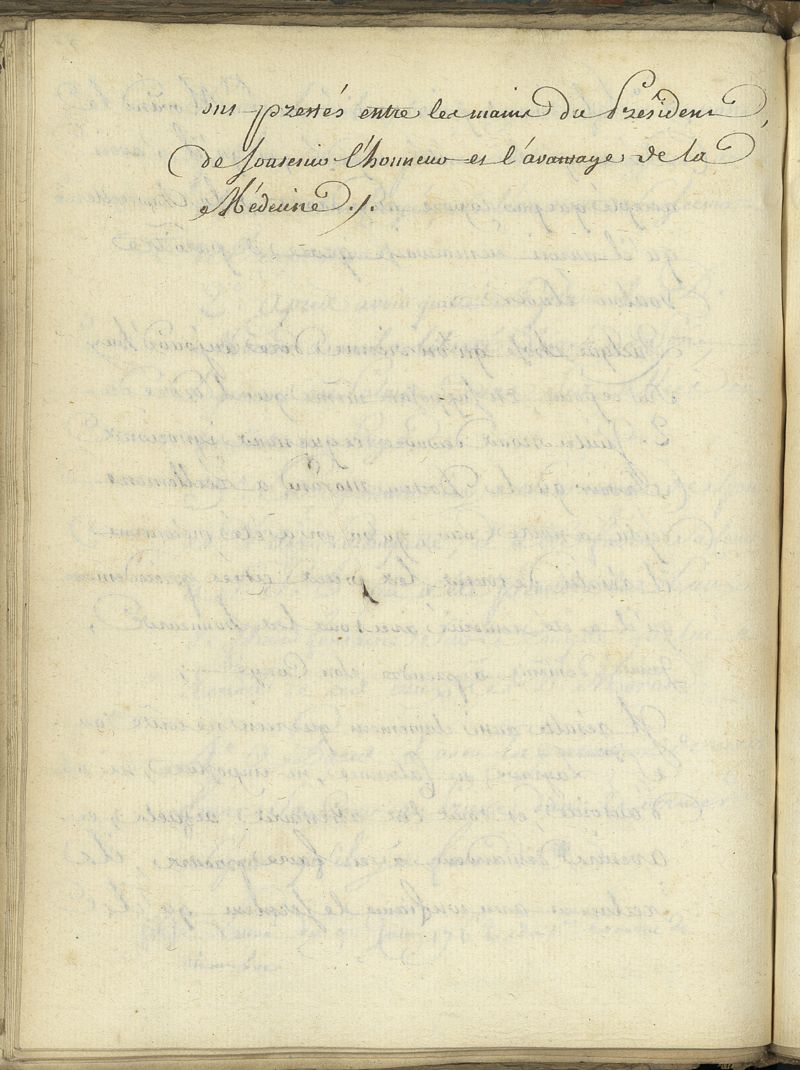 ont prestés entre les mains du Président,
de soutenir l'honneur et l'avantage de la
Médecine ./.